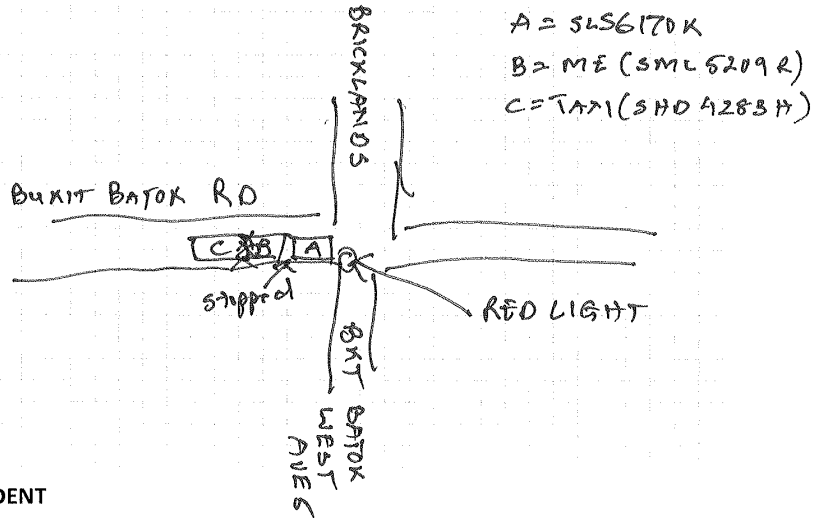 A = SLS6170K
B = ME (SML 5209R)
C = TAXI (SHD 4283H)
BRICKLANDS
BUKIT BATOK RD
C B A
stopped
RED LIGHT
BKT BATOK
WEST
AVE 5
DENT